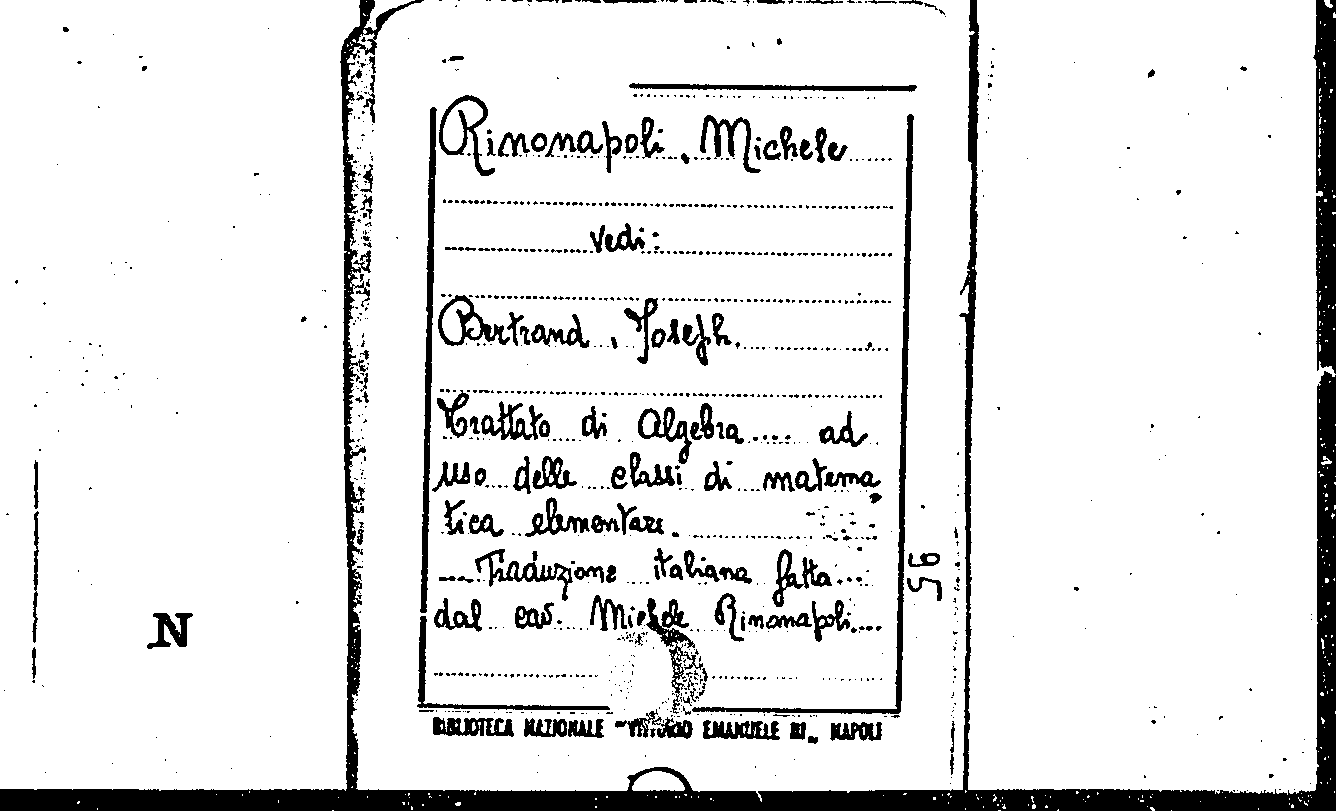 Rinonapoli, Michele
vedi:
Bertrand, Joseph.
Trattato di Algebra.... ad
uso delle classi di matema
tica elementare.
....Traduzione italiana fatta...
dal cav. Michele Rinonapoli....
BIBLIOTECA NAZIONALE "VITTORIO EMANUELE III" NAPOLI
N
95